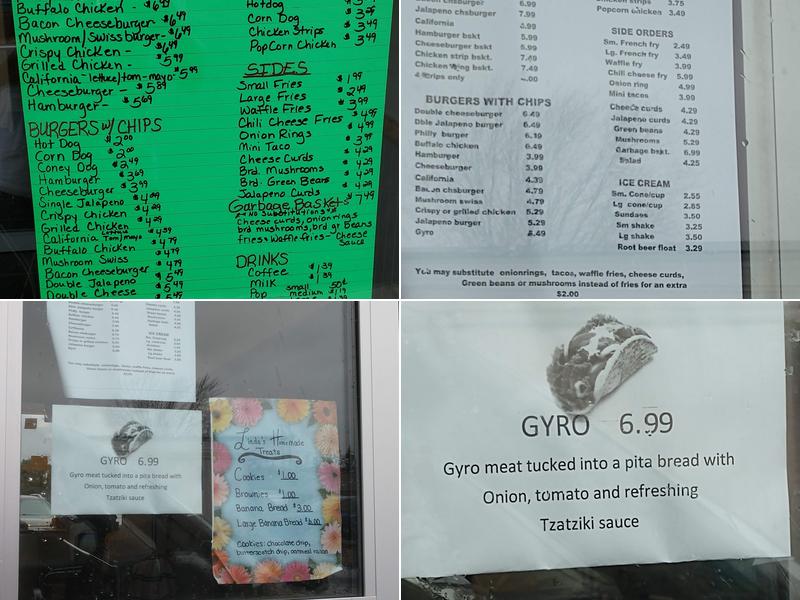 Buffalo Chicken - $6.49
Bacon Cheeseburger $6.49
Mushroom/Swiss burger - $6.49
Crispy Chicken - $6.49
Grilled Chicken - $5.99
California - lettuce/tom-mayo - $5.99
Cheeseburger - $5.89
Hamburger - $5.69
BURGERS w/ CHIPS
Hot Dog $2.00
Corn Dog $2.00
Coney Dog $2.49
Hamburger $3.69
Cheeseburger $3.99
Single Jalapeno
Crispy Chicken
Grilled Chicken $4.29
California
Buffalo Chicken $4.79
Mushroom Swiss $4.79
Bacon Cheeseburger
Double Jalapeno
Double Cheese
Hotdog
Corn Dog $3.49
Chicken Strips $3.49
PopCorn Chicken $3.49
SIDES
Small Fries $1.99
Large Fries $2.49
Waffle Fries $3.99
Chili Cheese Fries $4.99
Onion Rings $4.99
Mini Taco $3.99
Cheese Curds $4.29
Brd. Mushrooms $4.29
Brd. Green Beans $4.29
Jalapeno Curds $4.29
Garbage Basket $7.49
** No Substitutions **
cheese curds, onion rings
brd mushrooms, brd gr beans
fries & waffle fries - Cheese
Sauce
DRINKS
Coffee $1.39
Milk $1.39
Pop small
medium $1.79
Jalapeno chsburger 7.99
California 6.99
Hamburger bskt 5.99
Cheeseburger bskt 5.99
Chicken strip bskt. 7.49
Chicken Wing bskt. 7.49
strips only
BURGERS WITH CHIPS
Double cheeseburger 6.49
Dble Jalapeno burger 6.49
Philly burger 6.19
Buffalo chicken 6.49
Hamburger 3.99
Cheeseburger 3.99
California 4.39
Bacon chsburger 4.79
Mushroom swiss 4.79
Crispy or grilled chicken 5.29
Jalapeno burger 5.29
Gyro 6.49
3.75
Popcorn chicken 3.49
SIDE ORDERS
Sm. French fry 2.49
Lg. French fry 3.49
Waffle fry 3.99
Chili cheese fry 5.99
Onion ring 4.99
Mini tacos 3.99
Cheese curds 4.29
Jalapeno curds 4.29
Green beans 4.29
Mushrooms 5.29
Garbage bskt. 6.99
Salad 4.25
ICE CREAM
Sm. Cone/cup 2.55
Lg cone/cup 2.85
Sundaes 3.50
Sm shake 3.25
Lg shake 3.50
Root beer float 3.29
You may substitute onionrings, tacos, waffle fries, cheese curds,
Green beans or mushrooms instead of fries for an extra
$2.00
GYRO 6.99
Gyro meat tucked into a pita bread with
Onion, tomato and refreshing
Tzatziki sauce
Linda's Homemade
Treats
Cookies $1.00
Brownies $1.00
Banana Bread $3.00
Large Banana Bread $6.00
Cookies: chocolate chip,
butterscotch chip, oatmeal raisin
GYRO 6.99
Gyro meat tucked into a pita bread with
Onion, tomato and refreshing
Tzatziki sauce